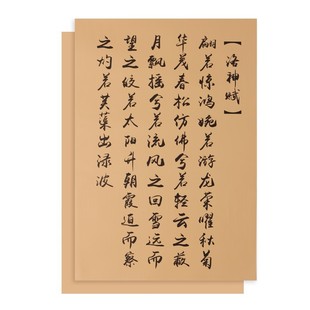 【洛神赋】
翩若惊鸿婉若游龙荣曜秋菊
华茂春松仿佛兮若轻云之蔽
月飘摇兮若流风之回雪远而
望之皎若太阳升朝霞迫而察
之灼若芙蕖出渌波